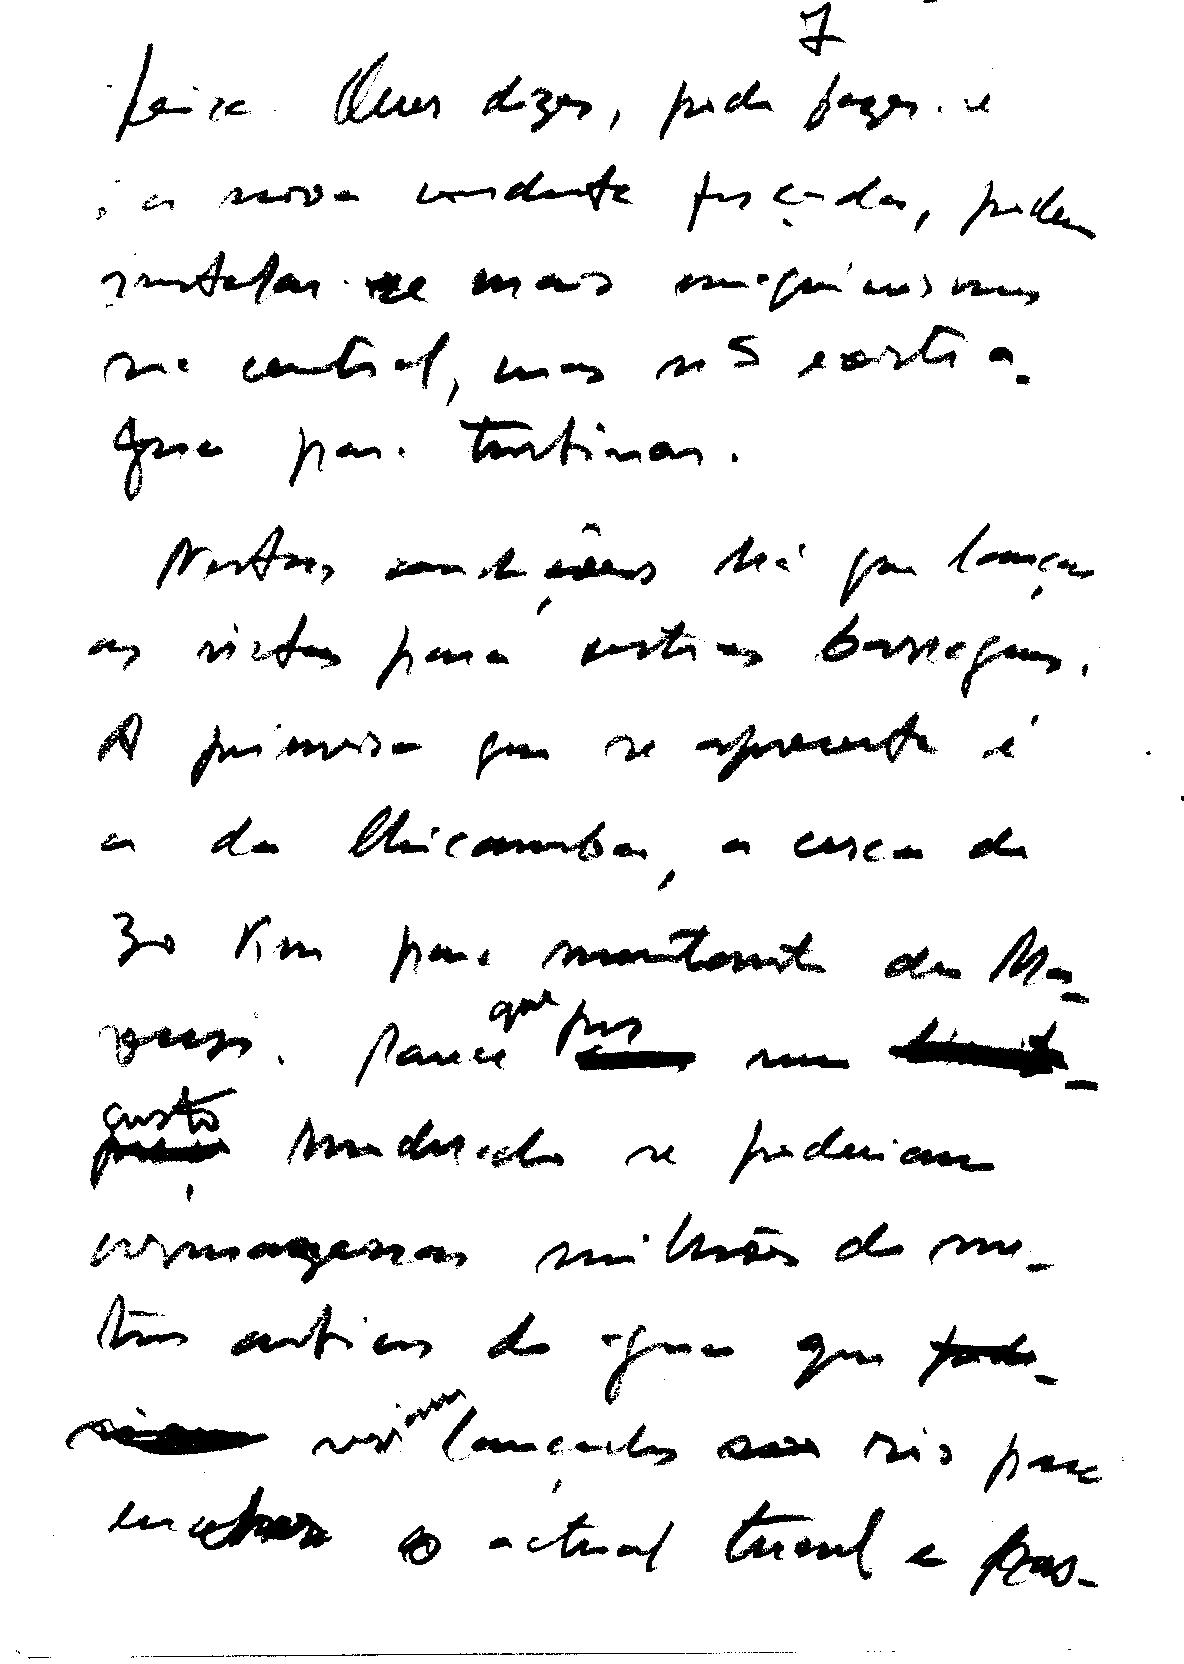 7
feira. Quer dizer, pode fazer-se
a nova conduta forçada, podem
instalar-se mais maquinismos
na central, mas não exist a
água para turbinar.
Nestas condições há que lançar
as vistas para outras barragens.
A primeira que se apresenta é
a da Chicamba, a cerca de
30 Km para montante de Ma-
vuzi. Parece que por um
gusto moderado se poderiam
armazenar milhões de me-
tros cubicos de agua que
seriam lançados ao rio para
encher o actual tunel e pas-